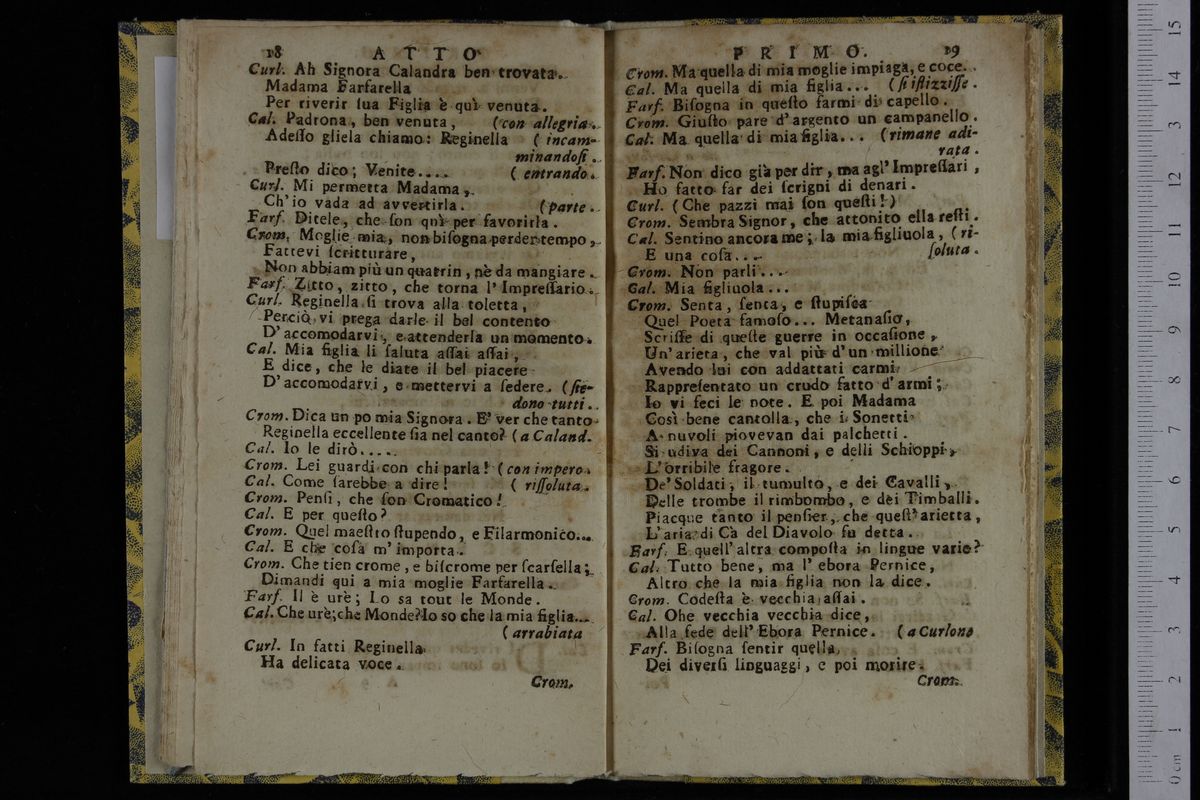 18 ATTO
Curl. Ah Signora Calandra ben trovata.
Madama Farfarella
Per riverir ſua Figlia è quì venuta.
Cal. Padrona, ben venuta, (con allegria.
Adeſſo gliela chiamo: Reginella (incam-
minandoſi.
Preſto dico; Venite.... (entrando.
Curl. Mi permetta Madama,
Ch'io vada ad avvertirla. (parte.
Farf. Ditele, che ſon quì per favorirla.
Crom. Moglie mia, non biſogna perder tempo,
Fattevi ſcritturare,
Non abbiam più un quatrin, nè da mangiare.
Farf. Zitto, zitto, che torna l'Impreſſario.
Curl. Reginella ſi trova alla toletta,
Perciò vi prega darle il bel contento
D'accomodarvi, e attenderla un momento.
Cal. Mia figlia li ſaluta aſſai aſſai,
E dice, che le diate il bel piacere
D'accomodarvi, e mettervi a ſedere. (ſie-
dono tutti.
Crom. Dica un po mia Signora. E' ver che tanto
Reginella eccellente ſia nel canto? (a Caland.
Cal. Io le dirò.....
Crom. Lei guardi con chi parla! (con impero.
Cal. Come ſarebbe a dire! (riſſoluta.
Crom. Penſi, che ſon Cromatico!
Cal. E per queſto?
Crom. Quel maeſtro ſtupendo, e Filarmonico...
Cal. E che coſa m'importa.
Crom. Che tien crome, e biſcrome per ſcarſella;
Dimandi qui a mia moglie Farfarella.
Farf. Il è urè; Lo sa tout le Monde.
Cal. Che urè; che Monde? Io so che la mia figlia...
(arrabiata
Curl. In fatti Reginella
Ha delicata voce.
Crom.
PRIMO. 19
Crom. Ma quella di mia moglie impiaga, e coce.
Cal. Ma quella di mia figlia... (ſi iſtizziſſe.
Farf. Biſogna in queſto farmi di capello.
Crom. Giuſto pare d'argento un campanello.
Cal. Ma quella di mia figlia... (rimane adi-
rata.
Farf. Non dico già per dir, ma agl'Impreſſari,
Ho fatto far dei ſcrigni di denari.
Curl. (Che pazzi mai ſon queſti!)
Crom. Sembra Signor, che attonito ella reſti.
Cal. Sentino ancora me; la mia figliuola, (ri-
E una coſa... ſoluta.
Crom. Non parli...
Cal. Mia figliuola...
Crom. Senta, ſenta, e ſtupiſca
Quel Poeta famoſo... Metanaſio,
Scriſſe di queſte guerre in occaſione,
Un'arieta, che val più d'un millione
Avendo lui con addattati carmi
Rappreſentato un crudo fatto d'armi;
Io vi feci le note. E poi Madama
Così bene cantolla, che i Sonetti
A nuvoli piovevan dai palchetti.
Si udiva dei Cannoni, e delli Schioppi,
L'orribile fragore.
De'Soldati, il tumulto, e dei Cavalli,
Delle trombe il rimbombo, e dei Timballi.
Piacque tanto il penſier, che queſt'arietta,
L'aria di Cà del Diavolo fu detta.
Farf. E quell'altra compoſta in lingue varie?
Cal. Tutto bene, ma l'ebora Pernice,
Altro che la mia figlia non la dice.
Crom. Codeſta è vecchia aſſai.
Cal. Ohe vecchia vecchia dice,
Alla fede dell'Ebora Pernice. (a Curlone
Farf. Biſogna ſentir quella,
Dei diverſi linguaggi, e poi morire.
Crom.